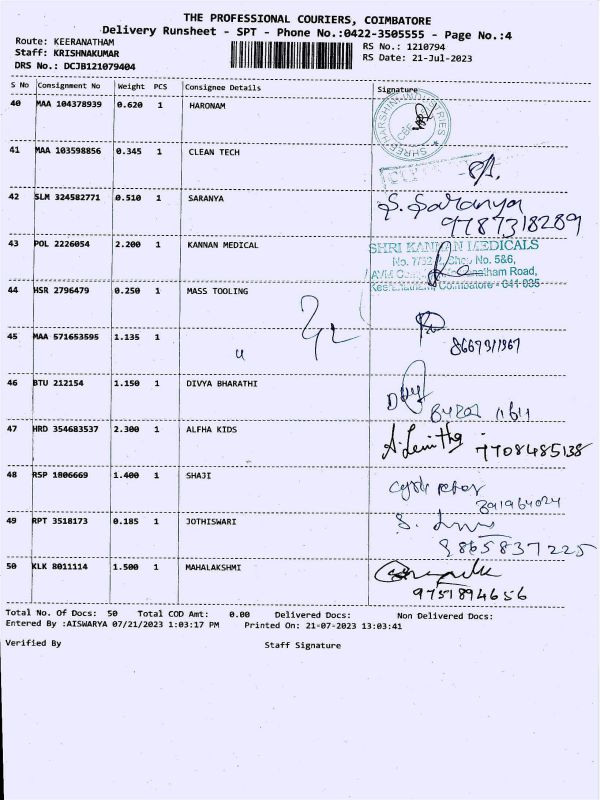 THE PROFESSIONAL COURIERS, COIMBATORE
Delivery Runsheet - SPT - Phone No.:0422-3505555 - Page No.:4
Route: KEERANATHAM
Staff: KRISHNAKUMAR
DRS No.: DCJB121079404
RS No.: 1210794
RS Date: 21-Jul-2023
S No Consignment No Weight PCS Consignee Details Signature
40 MAA 104378939 0.620 1 HARONAM
SHREE HARSHINI INDUSTRIES
41 MAA 103598856 0.345 1 CLEAN TECH
42 SLM 324582771 0.510 1 SARANYA S. Saranya
9787318289
43 POL 2226054 2.200 1 KANNAN MEDICAL SHRI KANNAN MEDICALS
No. 5&6,
Road,
Coimbatore - 641 035
44 HSR 2796479 0.250 1 MASS TOOLING
45 MAA 571653595 1.135 1
46 BTU 212154 1.150 1 DIVYA BHARATHI
47 HRD 354683537 2.300 1 ALFHA KIDS
7708485138
48 RSP 1806669 1.400 1 SHAJI
49 RPT 3518173 0.185 1 JOTHISWARI
8865837225
50 KLK 8011114 1.500 1 MAHALAKSHMI
9751894656
Total No. Of Docs: 50 Total COD Amt: 0.00 Delivered Docs: Non Delivered Docs:
Entered By :AISWARYA 07/21/2023 1:03:17 PM Printed On: 21-07-2023 13:03:41
Verified By Staff Signature